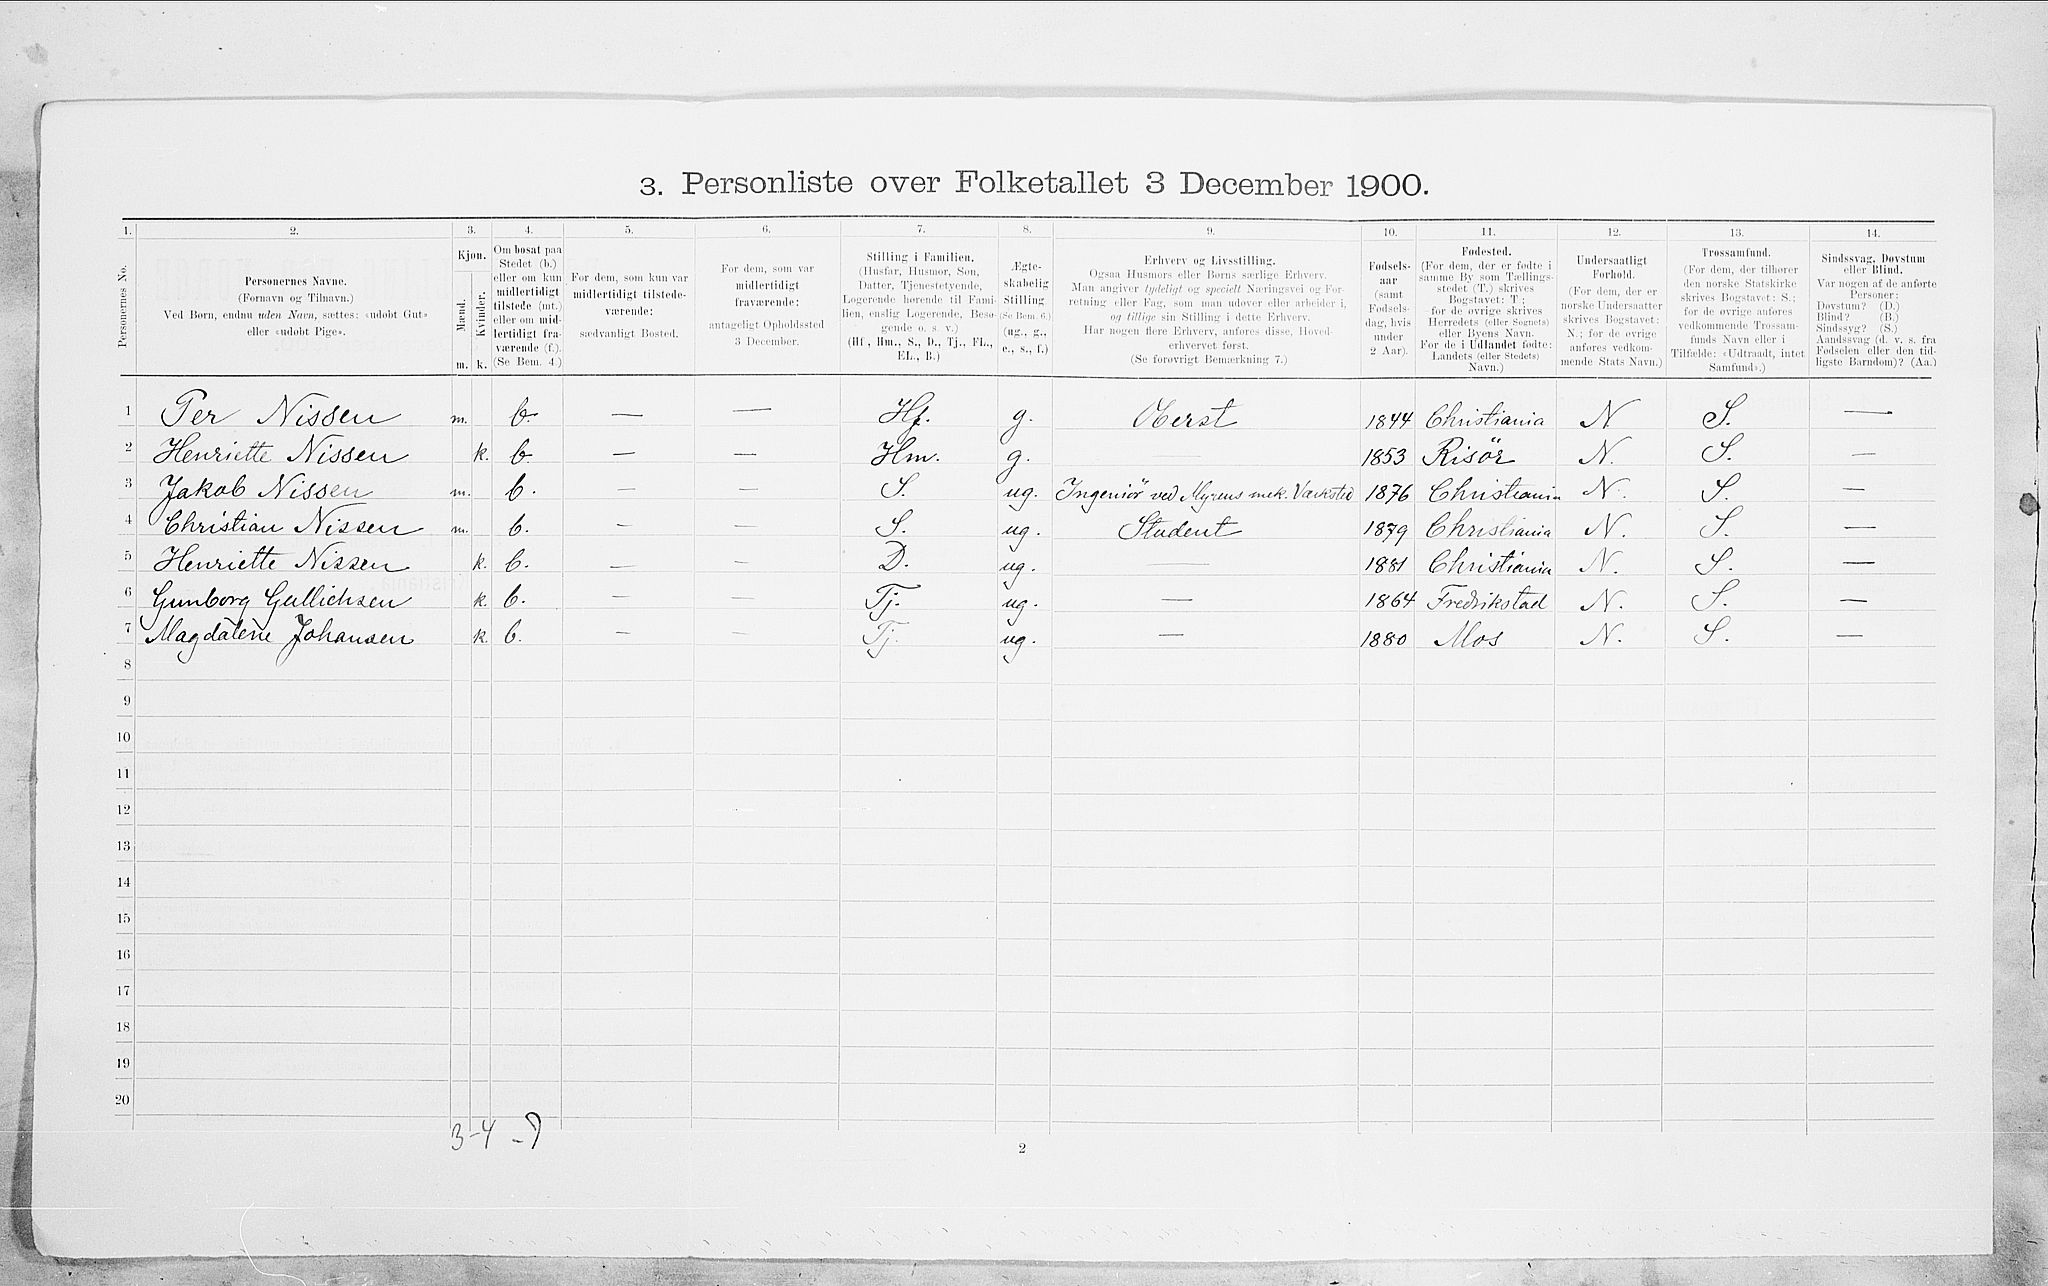 3. Personliste over Folketallet 3 December 1900.
1. 2. 3. 4. 5. 6. 7. 8. 9. 10. 11. 12. 13. 14.
Personernes No.
Personernes Navne.
(Fornavn og Tilnavn.)
Ved Børn, endnu uden Navn, sættes: «udøbt Gut»
eller «udøbt Pige».
Kjøn.
Mænd.
Kvinder.
m. k.
Om bosat paa
Stedet (b.)
eller om kun
midlertidigt
tilstede (mt.)
eller om mid-
lertidigt fra-
værende (f.).
(Se Bem. 4.)
For dem, som kun var
midlertidigt tilstede-
værende:
sædvanligt Bosted.
For dem, som var
midlertidigt
fraværende:
antageligt Opholdssted
3 December.
Stilling i Familien.
(Husfar, Husmor, Søn,
Datter, Tjenestetyende,
Logerende hørende til Fami-
lien, enslig Logerende, Besø-
gende o. s. v.)
(Hf., Hm., S., D., Tj., FL.,
EL., B.)
Ægte-
skabelig
Stilling
(Se Bem. 6.)
(ug., g.,
e., s., f.)
Erhverv og Livsstilling.
Ogsaa Husmors eller Børns særlige Erhverv.
Man angiver tydeligt og specielt Næringsvei og For-
retning eller Fag, som man udøver eller arbeider i,
og tillige sin Stilling i dette Erhverv.
Har nogen flere Erhverv, anføres disse, Hoved-
erhvervet først.
(Se forøvrigt Bemærkning 7.)
Fødsels-
aar
(samt
Fødsels-
dag, hvis
under
2 Aar).
Fødested.
(For dem, der er fødte i
samme By som Tællings-
stedet (T.) skrives
Bogstavet: T;
for de øvrige skrives
Herredets (eller Sognets)
eller Byens Navn.
For de i Udlandet fødte:
Landets (eller Stedets)
Navn.)
Undersaatligt
Forhold.
(For dem, der er
norske Undersaatter
skrives Bogstavet:
N.; for de øvrige
anføres vedkom-
mende Stats Navn.)
Trossamfund.
(For dem, der tilhører
den norske Statskirke
skrives Bogstavet: S.;
for de øvrige anføres
vedkommende Trossam-
funds Navn eller i
Tilfælde: «Udtraadt, intet
Samfund».)
Sindssvag, Døvstum
eller Blind.
Var nogen af de anførte
Personer:
Døvstum? (D.)
Blind? (B.)
Sindssyg? (S.)
Aandssvag (d. v. s. fra
Fødselen eller den tid-
ligste Barndom)? (Aa.)
1 Per Nissen m. b. — — Hf. g. Oberst 1844 Christiania N S. —
2 Henriette Nissen k. b. — — Hm. g. — 1853 Risör N. S. —
3 Jakob Nissen m. b. — — S. ug. Ingeniör ved Myrens mek. Værksted 1876 Christiania N. S. —
4 Christian Nissen m. b. — — S. ug. Student 1879 Christiania N. S. —
5 Henriette Nissen k. b. — — D. ug. — 1881 Christiania N. S. —
6 Gunborg Gullichsen k. b. — — Tj. ug. — 1864 Fredrikstad N. S. —
7 Magdalene Johansen k. b. — — Tj. ug. — 1880 Mos N. S. —
8
9
10
11
12
13
14
15
16
17
18
19
20
3-4
2